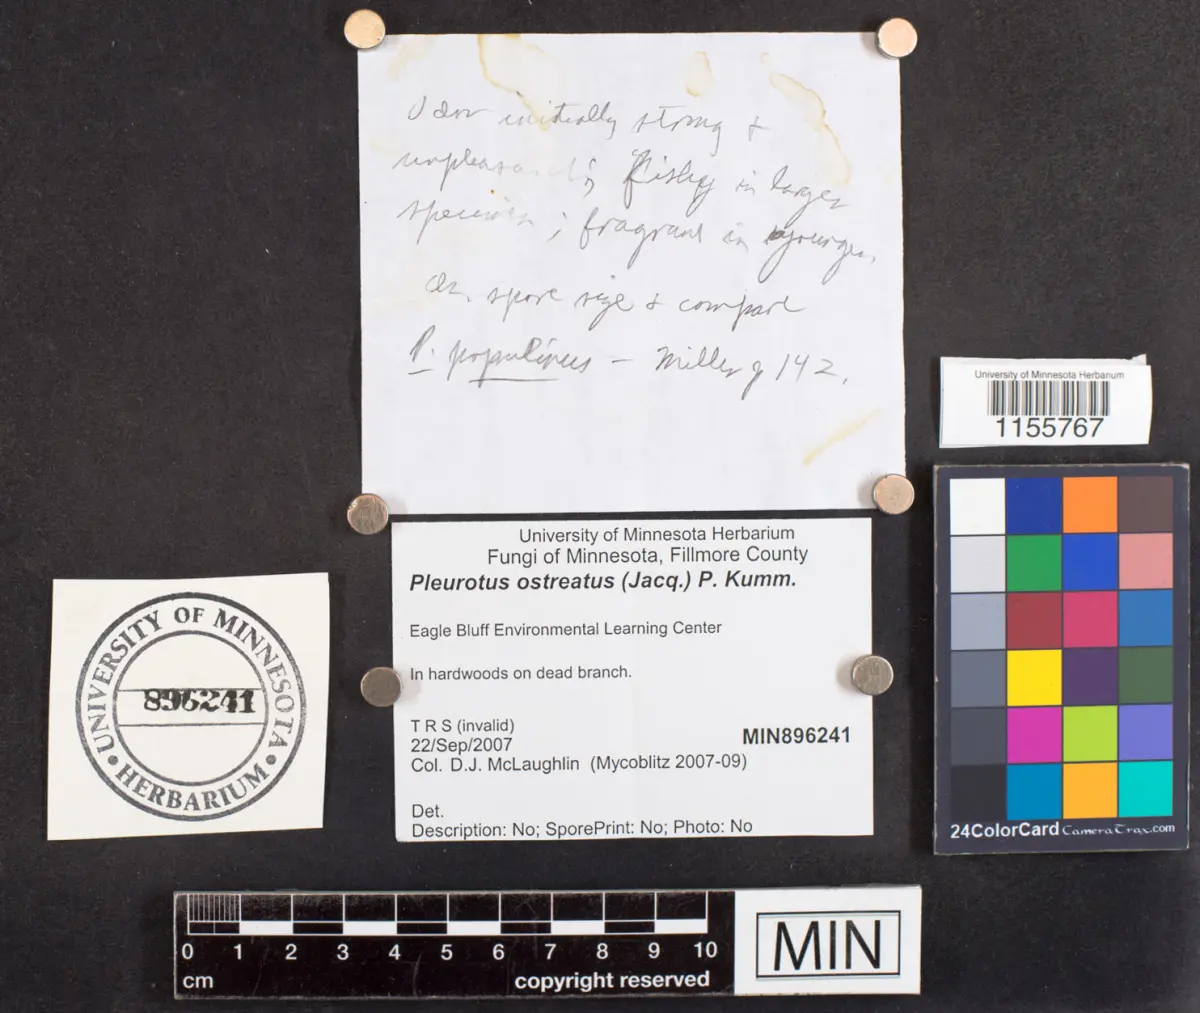 Odor initially strong +
unpleasantly fishy in larger
specimen; fragrant in younger.
spore size + compare
P. populinus - Miller p 142.
University of Minnesota Herbarium
1155767
University of Minnesota Herbarium
Fungi of Minnesota, Fillmore County
Pleurotus ostreatus (Jacq.) P. Kumm.
Eagle Bluff Environmental Learning Center
In hardwoods on dead branch.
T R S (invalid)
22/Sep/2007
MIN896241
Col. D.J. McLaughlin (Mycoblitz 2007-09)
Det.
Description: No; SporePrint: No; Photo: No
UNIVERSITY OF MINNESOTA
896241
HERBARIUM
24ColorCard CameraTrax.com
0 1 2 3 4 5 6 7 8 9 10
cm copyright reserved
MIN